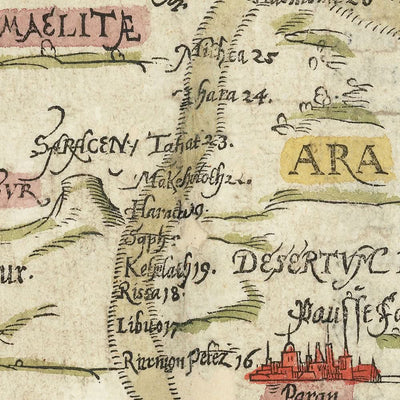 MAELITÆ
Mithca 25
Thara 24.
SARACENI Tahat 23.
ARA
Makeloth 22.
Harad
Saph
Kehelath 19.
DESERTVM
Rissa 18.
ur.
Libno 17
Rinmon Perez 16
Paran